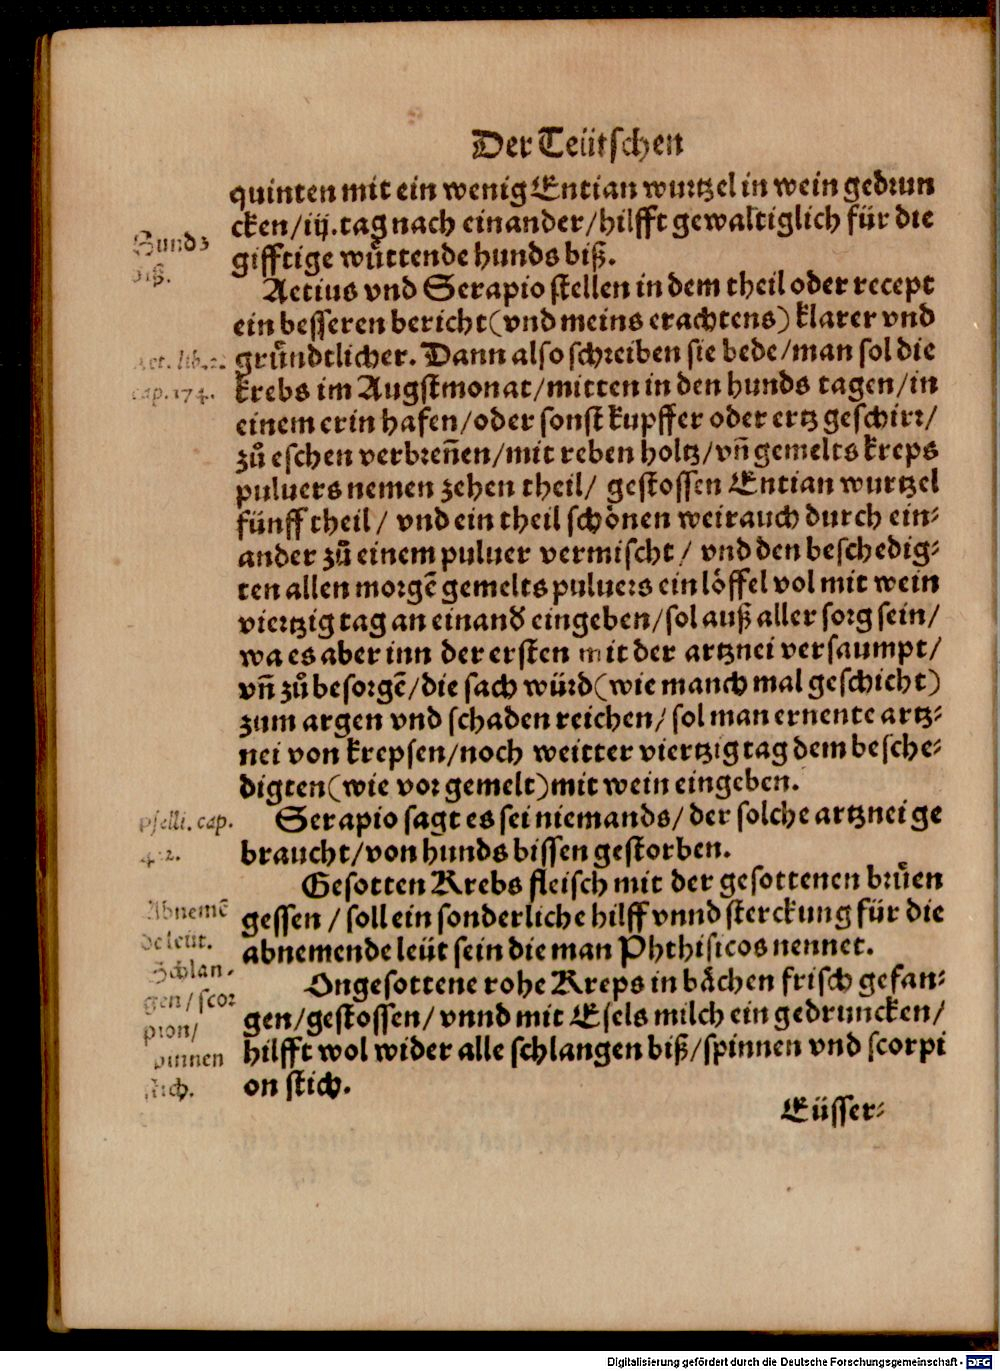 Der Teütschen
quinten mit ein wenig Entian wurtzel in wein gedrun
cken/iij.tag nach einander/hilfft gewaltiglich für die
gifftige wůttende hunds biß.
Hunds
biß.
Aetius vnd Serapio stellen in dem theil oder recept
ein besseren bericht(vnd meins erachtens) klarer vnd
grůndtlicher. Dann also schreiben sie bede/man sol die
Aet. lib.
cap.174.
krebs im Augstmonat/mitten in den hunds tagen/in
einem erin hafen/oder sonst kupffer oder ertz geschirr/
zů eschen verbreñen/mit reben holtz/vñ gemelts kreps
puluers nemen zehen theil/ gestossen Entian wurtzel
fünff theil/ vnd ein theil schönen weirauch durch ein⸗
ander zů einem puluer vermischt/ vnd den beschedig⸗
ten allen morgē gemelts puluers ein löffel vol mit wein
viertzig tag an einand eingeben/sol auß aller sorg sein/
wa es aber inn der ersten mit der artznei versaumpt/
vñ zů besorgē/die sach würd(wie manch mal geschicht)
zum argen vnd schaden reichen/ sol man ernente artz⸗
nei von krepsen/noch weitter viertzig tag dem besche⸗
digten(wie vor gemelt)mit wein eingeben.
Serapio sagt es sei niemands/ der solche artznei ge
braucht/von hunds bissen gestorben.
Pselli. cap.
Gesotten Krebs fleisch mit der gesottenen brůen
gessen / soll ein sonderliche hilff vnnd sterckung für die
abnemende leüt sein die man Phthisicos nennet.
Abnemē
de leüt.
Ongesottene rohe Kreps in bächen frisch gefan⸗
gen/gestossen/ vnnd mit Esels milch ein gedruncken/
hilfft wol wider alle schlangen biß/spinnen vnd scorpi
on stich.
Schlan⸗
gen/scor
pion/
spinnen
stich.
Eüsser⸗
Digitalisierung gefördert durch die Deutsche Forschungsgemeinschaft - DFG